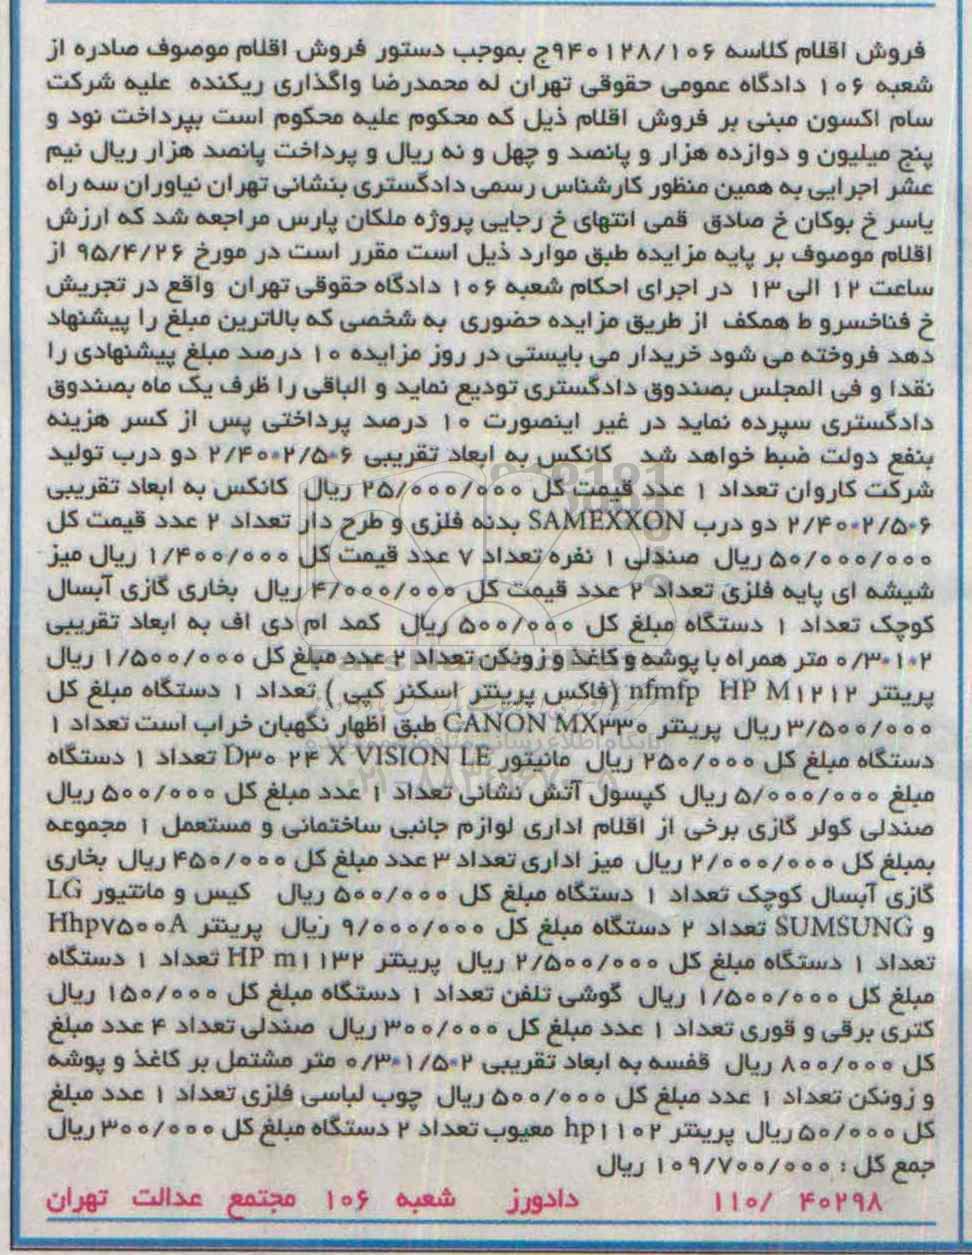 فروش اقلام کلاسه ۹۴۰۱۲۸/۱۰۶ج بموجب دستور فروش اقلام موصوف صادره از
شعبه ۱۰۶ دادگاه عمومی حقوقی تهران له محمدرضا واگذاری ریکنده علیه شرکت
سام اکسون مبنی بر فروش اقلام ذیل که محکوم علیه محکوم است بپرداخت نود و
پنج میلیون و دوازده هزار و پانصد و چهل و نه ریال و پرداخت پانصد هزار ریال نیم
عشر اجرایی به همین منظور کارشناس رسمی دادگستری بنشانی تهران نیاوران سه راه
یاسر خ بوکان خ صادق قمی انتهای خ رجایی پروژه ملکان پارس مراجعه شد که ارزش
اقلام موصوف بر پایه مزایده طبق موارد ذیل است مقرر است در مورخ ۹۵/۴/۲۶ از
ساعت ۱۲ الی ۱۳ در اجرای احکام شعبه ۱۰۶ دادگاه حقوقی تهران واقع در تجریش
خ فناخسرو ط همکف از طریق مزایده حضوری به شخصی که بالاترین مبلغ را پیشنهاد
دهد فروخته می شود خریدار می بایستی در روز مزایده ۱۰ درصد مبلغ پیشنهادی را
نقدا و فی المجلس بصندوق دادگستری تودیع نماید و الباقی را ظرف یک ماه بصندوق
دادگستری سپرده نماید در غیر اینصورت ۱۰ درصد پرداختی پس از کسر هزینه
بنفع دولت ضبط خواهد شد کانکس به ابعاد تقریبی ۶*۲/۵*۲/۴۰ دو درب تولید
شرکت کاروان تعداد ۱ عدد قیمت کل ۲۵/۰۰۰/۰۰۰ ریال کانکس به ابعاد تقریبی
۶*۲/۵*۲/۴۰ دو درب SAMEXXON بدنه فلزی و طرح دار تعداد ۲ عدد قیمت کل
۵۰/۰۰۰/۰۰۰ ریال صندلی ۱ نفره تعداد ۷ عدد قیمت کل ۱/۴۰۰/۰۰۰ ریال میز
شیشه ای پایه فلزی تعداد ۲ عدد قیمت کل ۴/۰۰۰/۰۰۰ ریال بخاری گازی آبسال
کوچک تعداد ۱ دستگاه مبلغ کل ۵۰۰/۰۰۰ ریال کمد ام دی اف به ابعاد تقریبی
۲*۱*۰/۳ متر همراه با پوشه و کاغذ و زونکن تعداد ۲ عدد مبلغ کل ۱/۵۰۰/۰۰۰ ریال
پرینتر nfmfp HP M۱۲۱۲ (فاکس پرینتر اسکنر کپی ) تعداد ۱ دستگاه مبلغ کل
۳/۵۰۰/۰۰۰ ریال پرینتر CANON MX۳۳۰ طبق اظهار نگهبان خراب است تعداد ۱
دستگاه مبلغ کل ۲۵۰/۰۰۰ ریال مانیتور D۳۰ ۲۴ X VISION LE تعداد ۱ دستگاه
مبلغ ۵/۰۰۰/۰۰۰ ریال کپسول آتش نشانی تعداد ۱ عدد مبلغ کل ۵۰۰/۰۰۰ ریال
صندلی کولر گازی برخی از اقلام اداری لوازم جانبی ساختمانی و مستعمل ۱ مجموعه
بمبلغ کل ۲/۰۰۰/۰۰۰ ریال میز اداری تعداد ۳ عدد مبلغ کل ۴۵۰/۰۰۰ ریال بخاری
گازی آبسال کوچک تعداد ۱ دستگاه مبلغ کل ۵۰۰/۰۰۰ ریال کیس و مانتیور LG
و SUMSUNG تعداد ۲ دستگاه مبلغ کل ۹/۰۰۰/۰۰۰ ریال پرینتر Hhp۷۵۰۰A
تعداد ۱ دستگاه مبلغ کل ۲/۵۰۰/۰۰۰ ریال پرینتر HP m۱۱۳۲ تعداد ۱ دستگاه
مبلغ کل ۱/۵۰۰/۰۰۰ ریال گوشی تلفن تعداد ۱ دستگاه مبلغ کل ۱۵۰/۰۰۰ ریال
کتری برقی و قوری تعداد ۱ عدد مبلغ کل ۳۰۰/۰۰۰ ریال صندلی تعداد ۴ عدد مبلغ
کل ۸۰۰/۰۰۰ ریال قفسه به ابعاد تقریبی ۲*۱/۵*۰/۳ متر مشتمل بر کاغذ و پوشه
و زونکن تعداد ۱ عدد مبلغ کل ۵۰۰/۰۰۰ ریال چوب لباسی فلزی تعداد ۱ عدد مبلغ
کل ۵۰/۰۰۰ ریال پرینتر hp۱۱۰۲ معیوب تعداد ۲ دستگاه مبلغ کل ۳۰۰/۰۰۰ ریال
جمع کل : ۱۰۹/۷۰۰/۰۰۰ ریال
۱۱۰/ ۴۰۲۹۸ دادورز شعبه ۱۰۶ مجتمع عدالت تهران